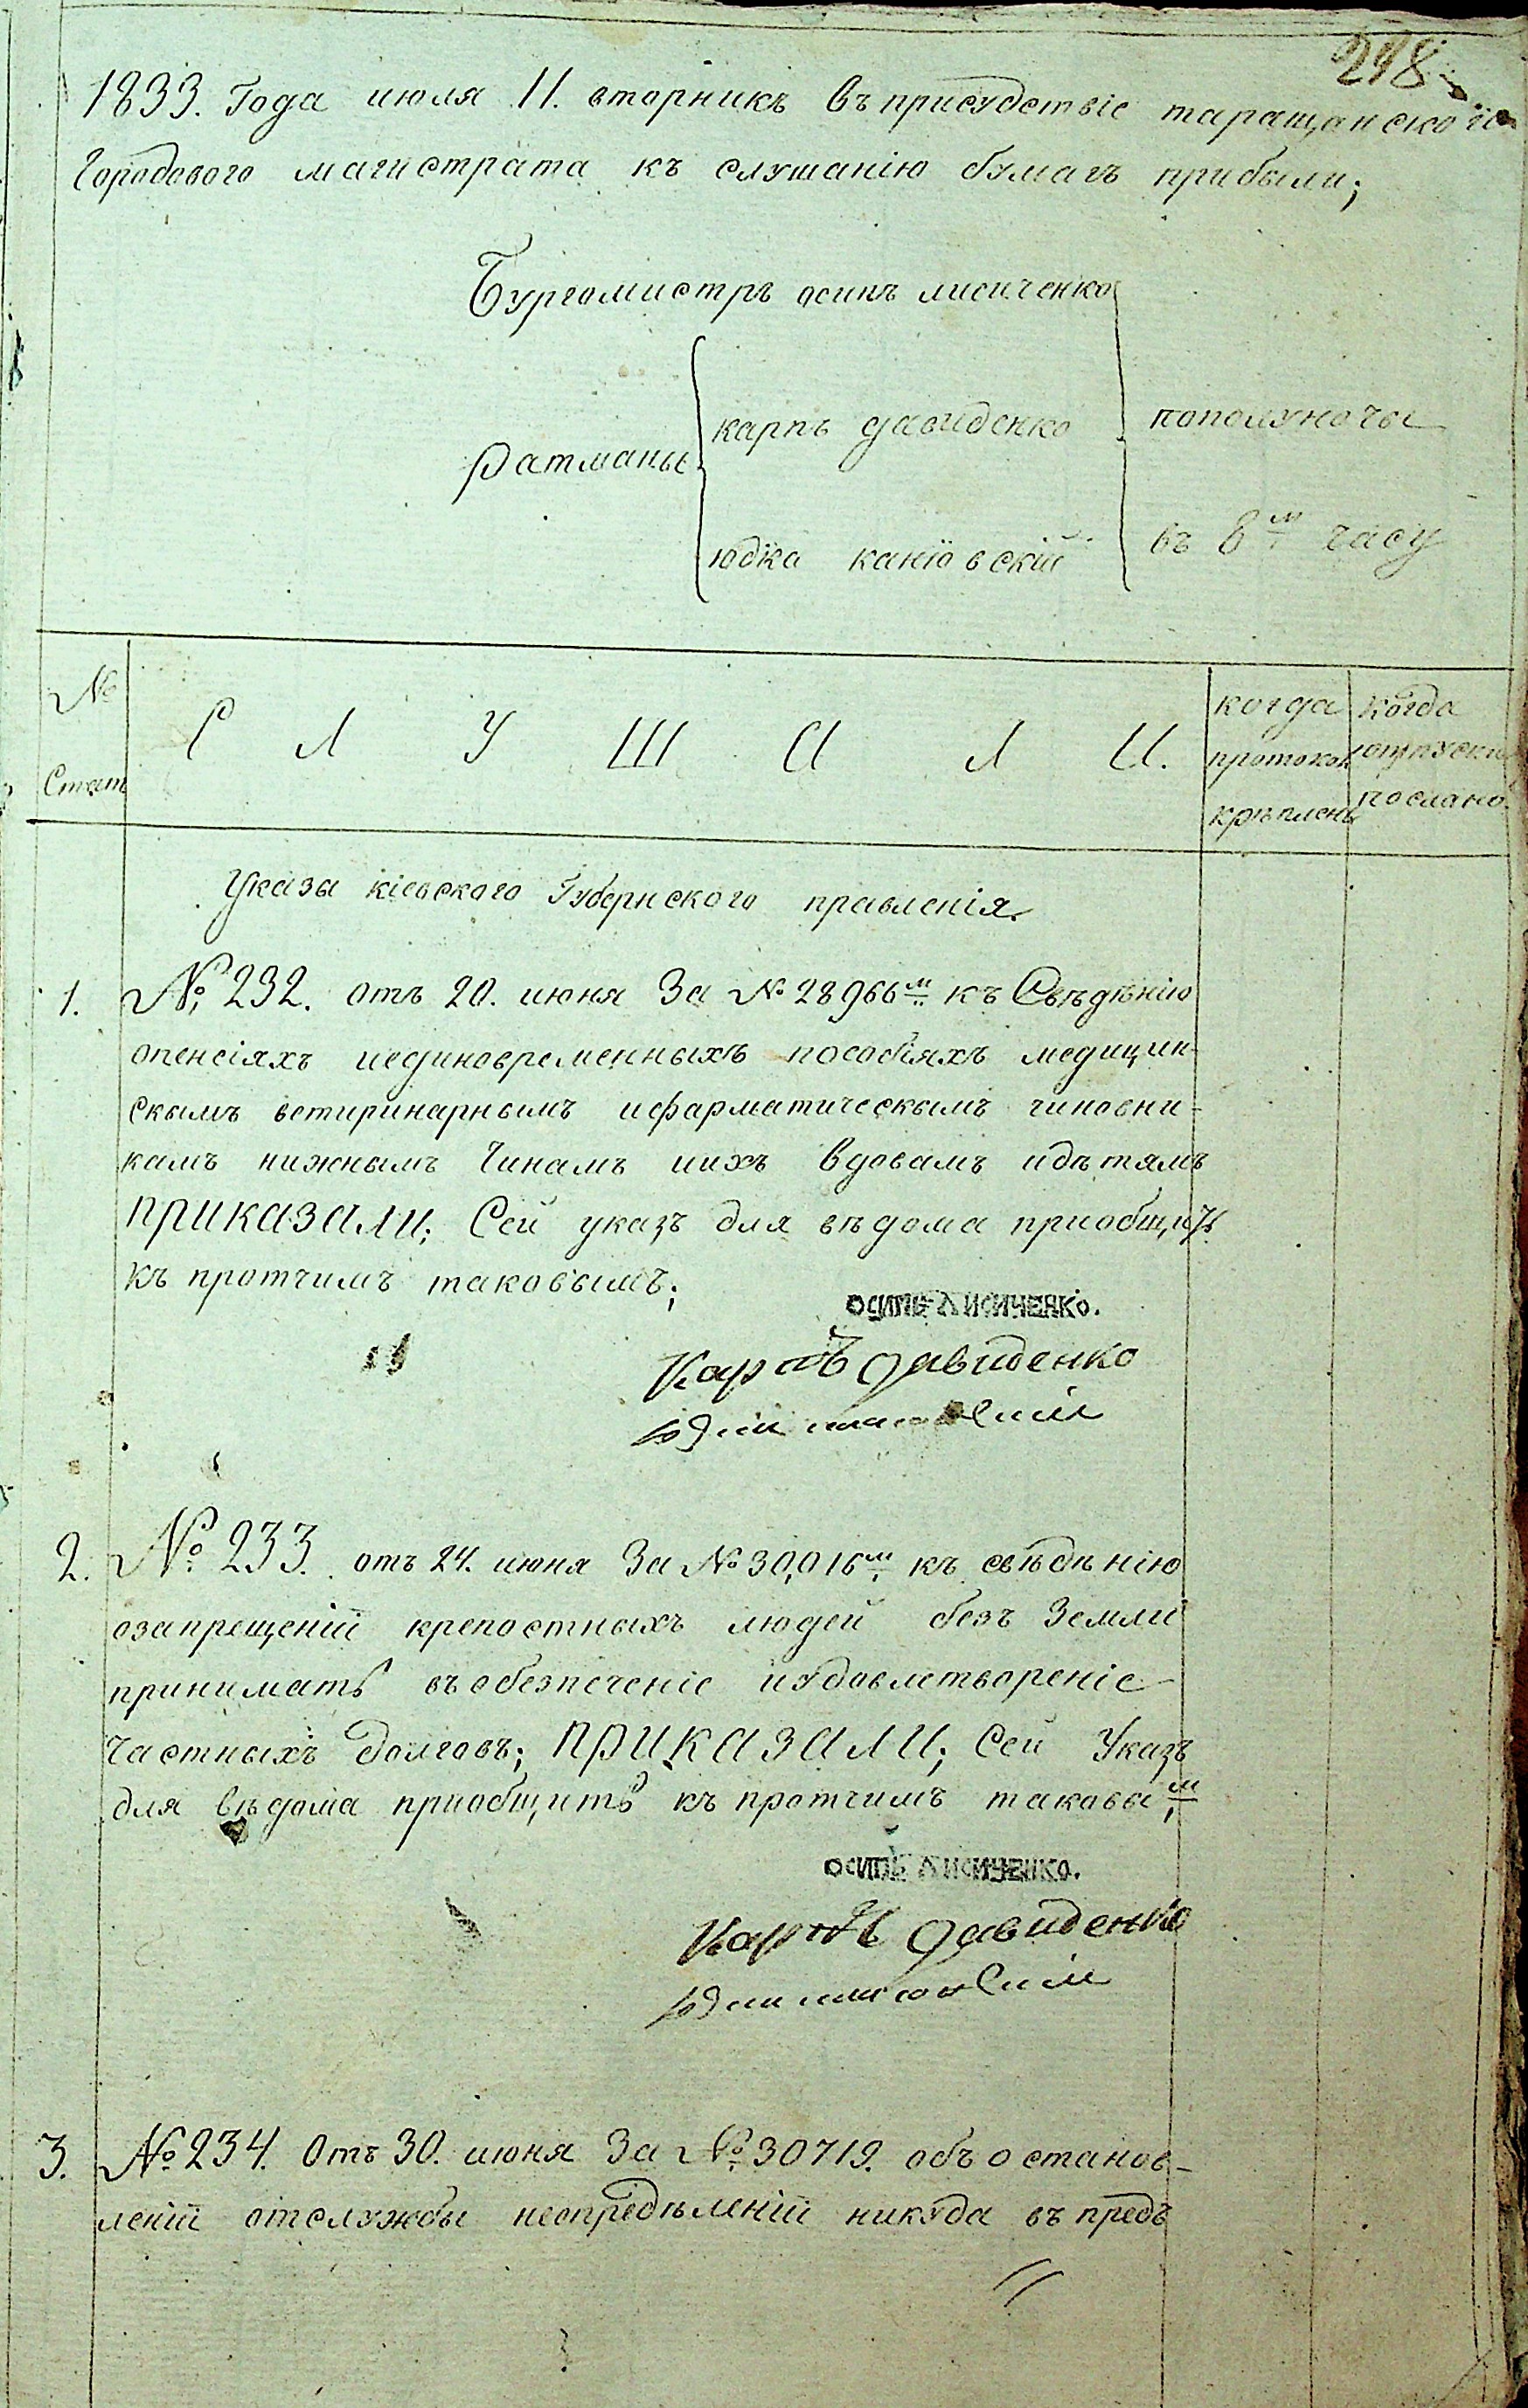 248
1833. Года июля 11. вторникъ въ присудствіе таращанского
Городового магистрата къ слушанію бумагъ прибыли;
Бургомистръ осипъ лисиченко
Ратманы
карпъ давиденко
пополуночы
юдка каніовскій
въ 8м часу
№
Стат
С Л У Ш А Л И.
когда
протокол
крѣплены
когда
отпуски
послано.
Указы кіевского Губернского правленія.
1. № 232. отъ 20. июня За № 28966м къ Свѣдѣнію
опенсіяхъ иединовременныхъ пособіяхъ медицин-
скымъ ветиринарнымъ ифарматическымъ чиновни-
камъ нижнымъ Чинамъ иихъ вдовамъ идѣтямъ
ПРИКАЗАЛИ; Сей указъ для вѣдома приобщить
къ протчимъ таковымъ;
осипъ Лисиченко.
Карпъ давиденко
2. № 233. отъ 24. июня За № 30,016м къ свѣдѣнію
озапрещеніи крепостныхъ людей безъ Земли
принимать въобезпеченіе иудовлетвореніе
Частныхъ Долговъ; ПРИКАЗАЛИ; Сей Указъ
для вѣдома приобщить къ протчимъ таковым;
осипъ Лисиченко.
Карпъ давиденко
3. № 234. Отъ 30. июня За № 30719. объостанов-
леніи отслужбы неопредѣленіи никуда въ предь